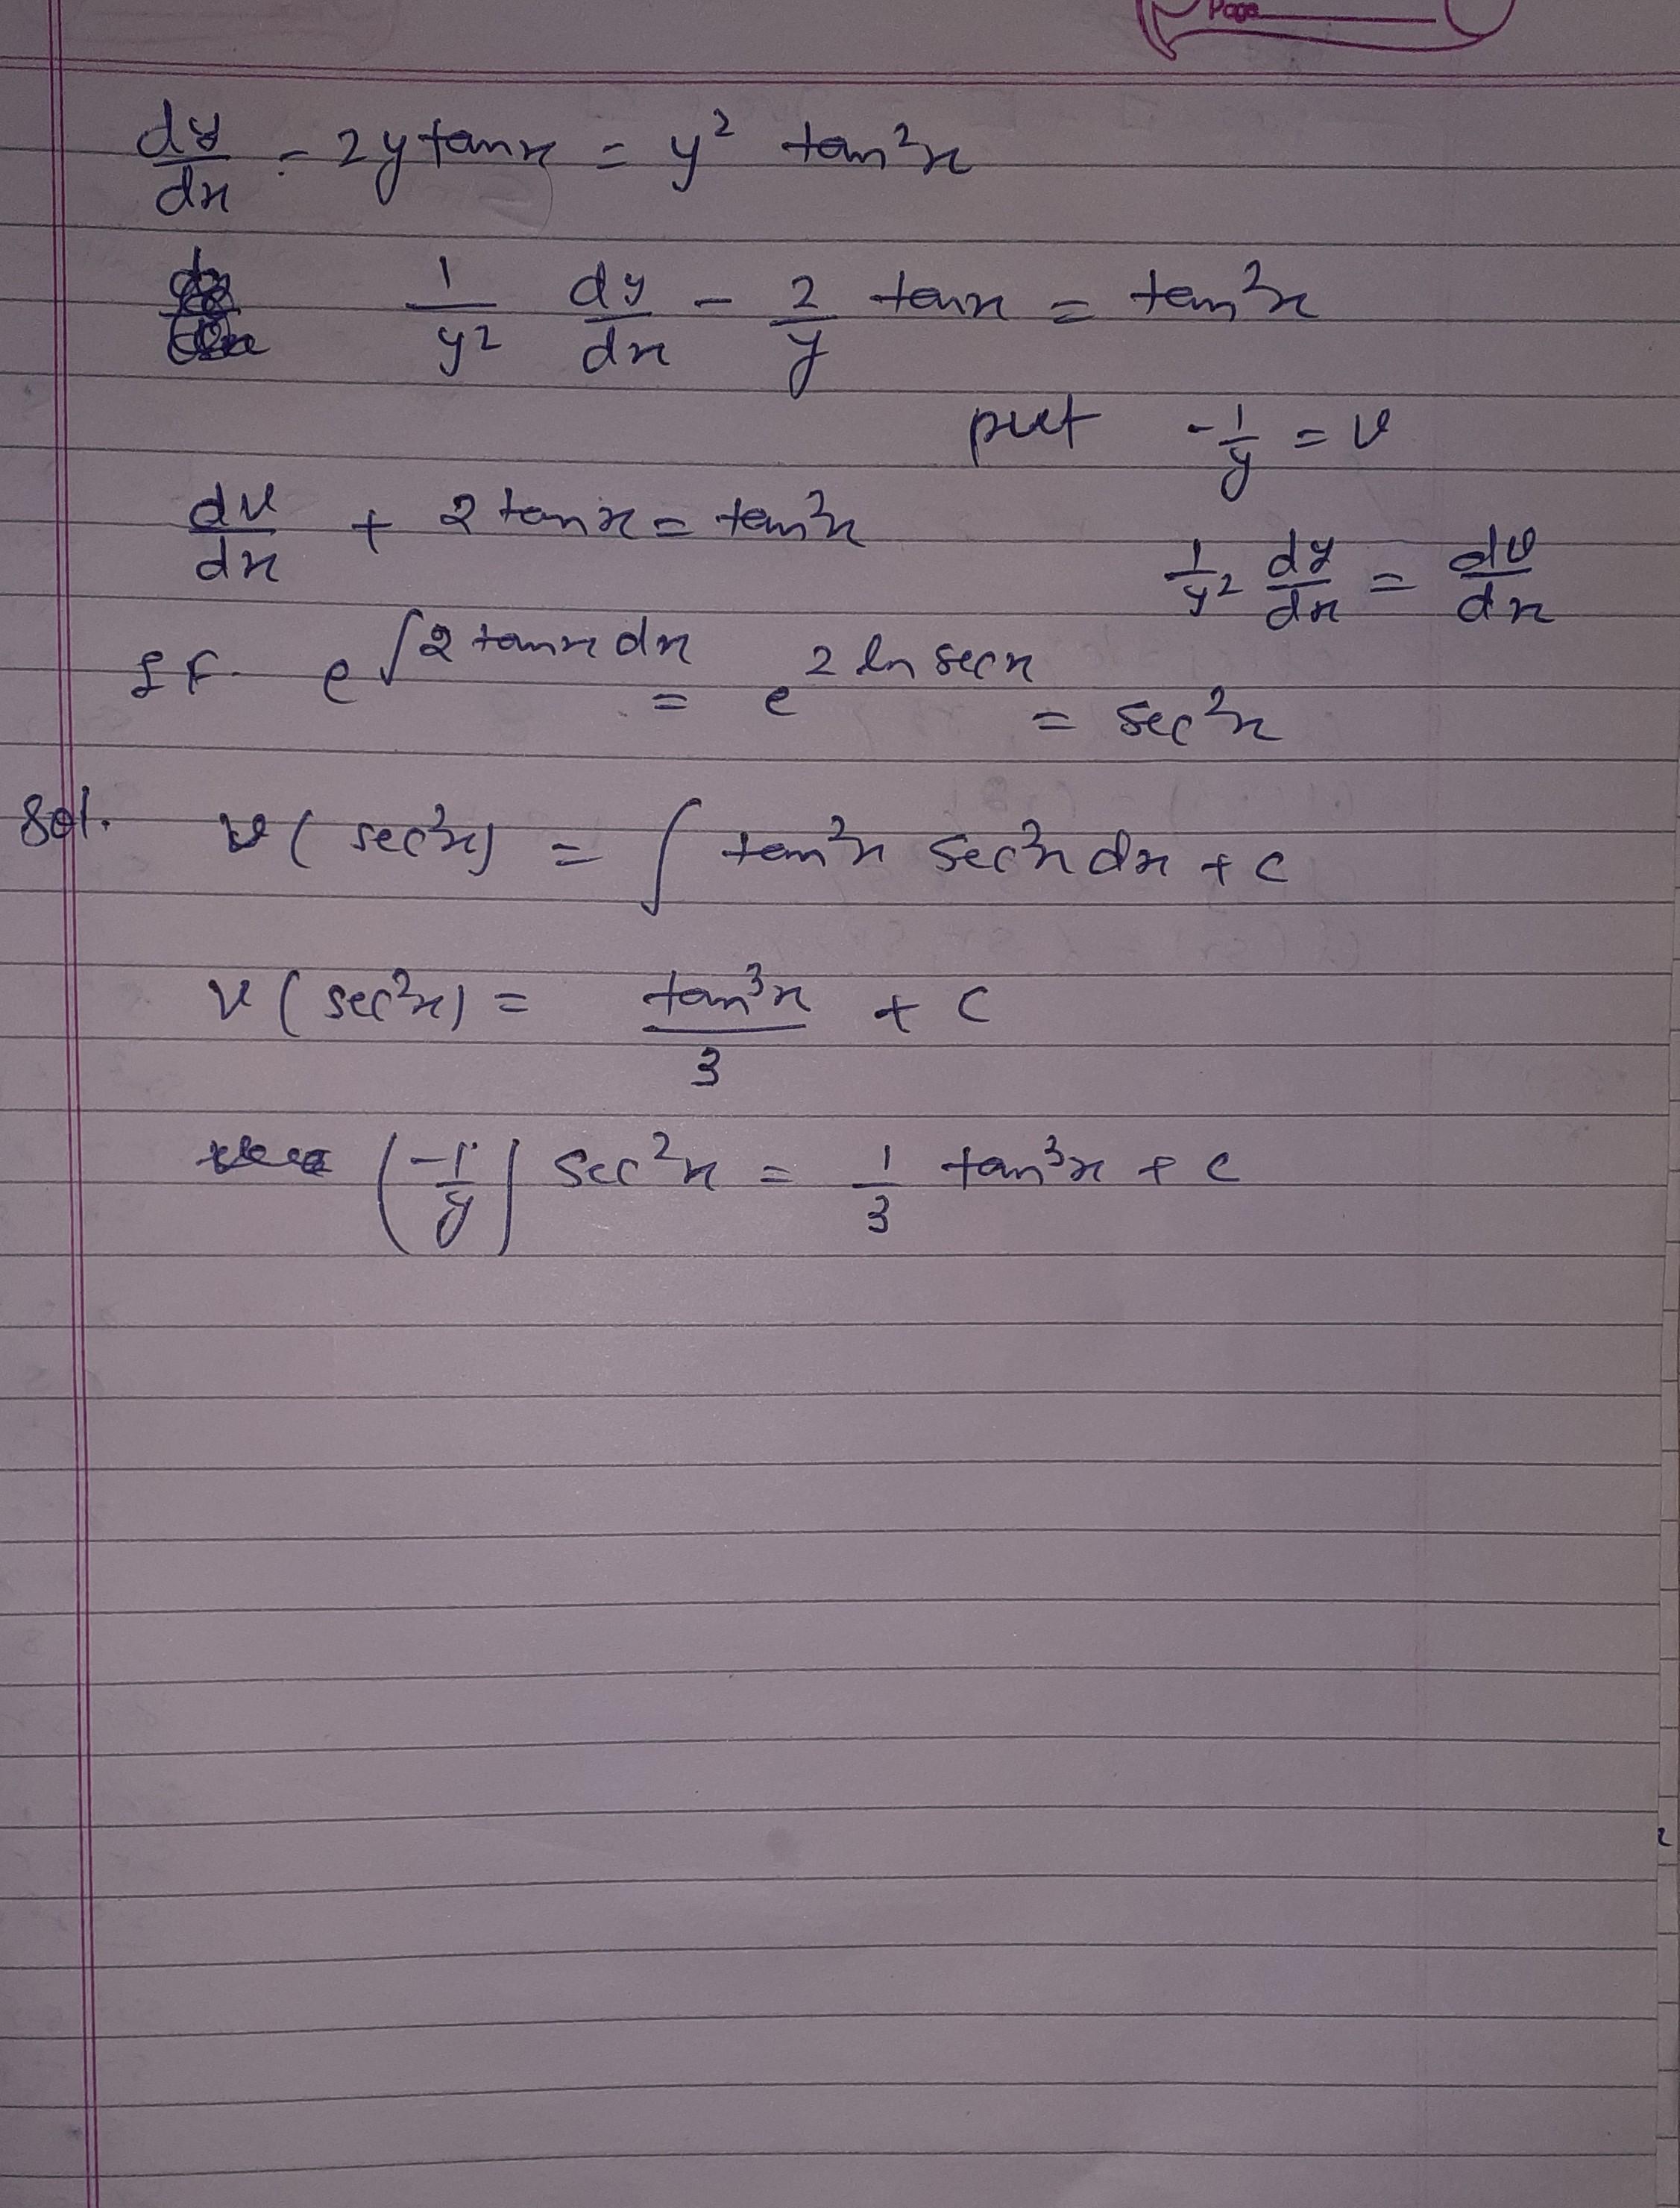 Page
dy/dx - 2y tanx = y² tan²x
1/y² dy/dx - 2/y tanx = tan²x
put -1/y = v
dv/dx + 2 tanx = tan²x
1/y² dy/dx = dv/dx
I F. e^∫2 tanx dx = e^2 ln secx = sec²x
Sol. v ( sec²x) = ∫ tan²x sec²x dx + c
v ( sec²x) = tan³x/3 + c
(-1/y) sec²x = 1/3 tan³x + c